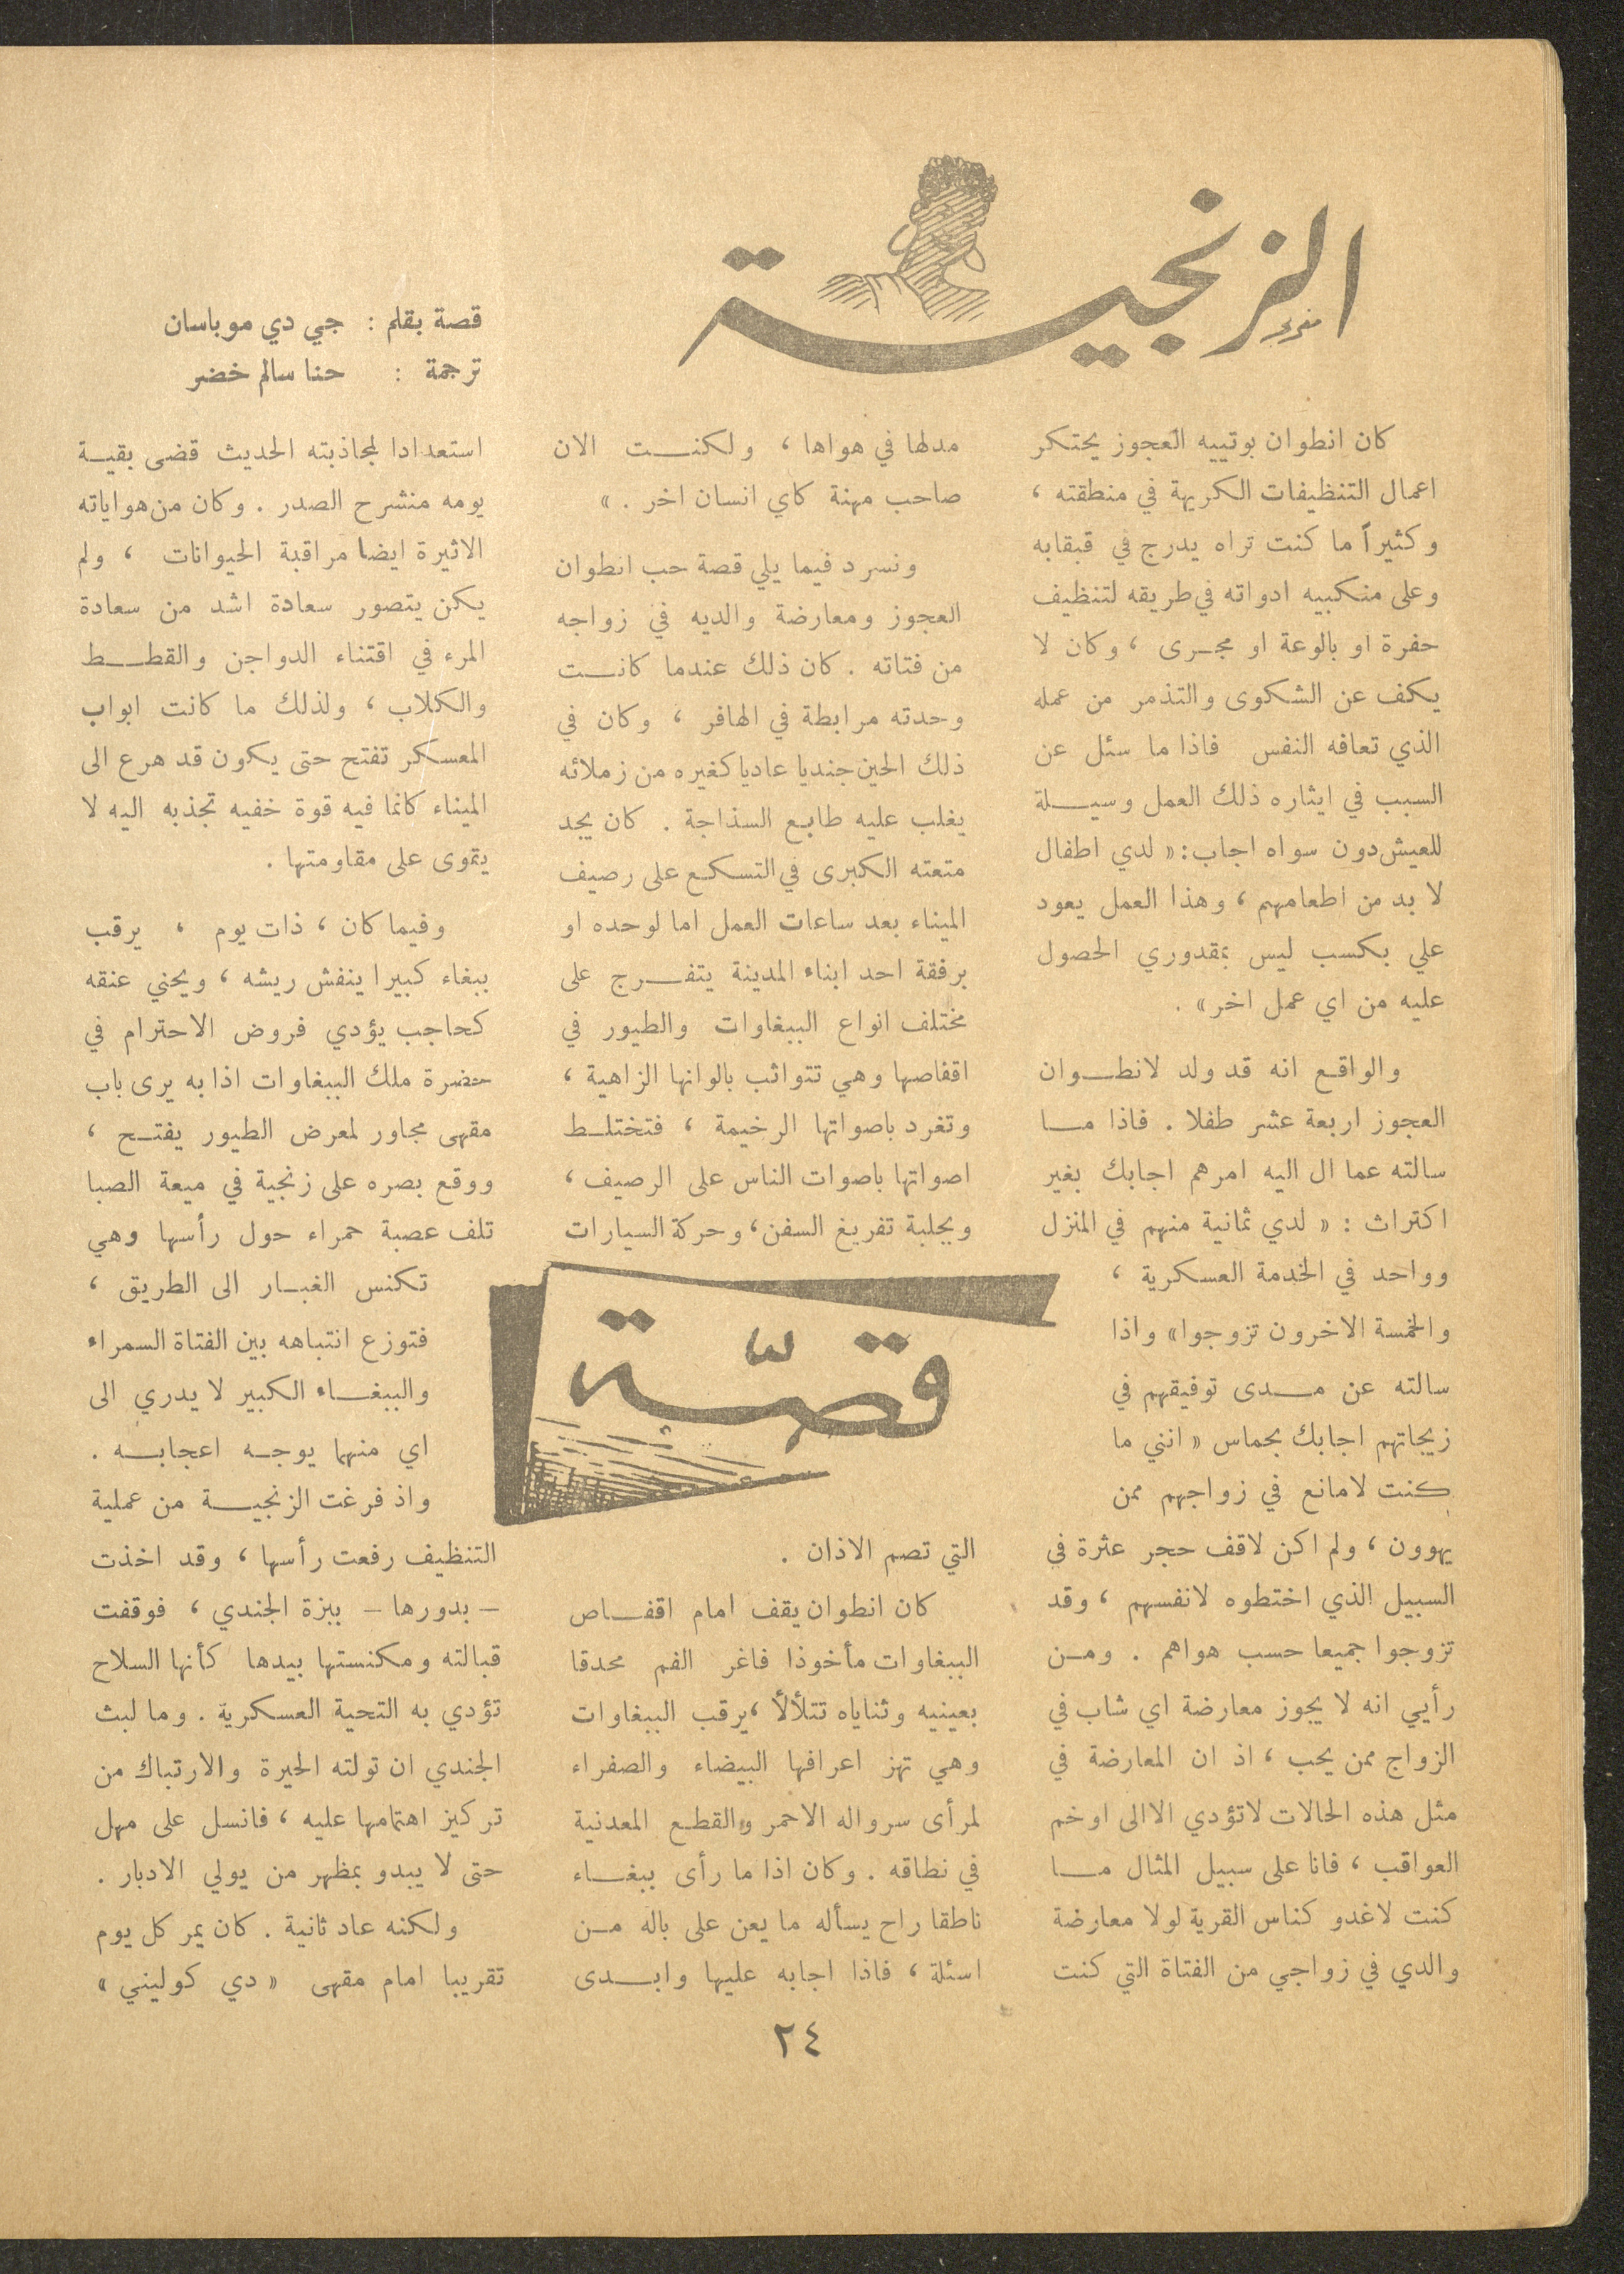 الزنجية
قصة بقلم : جي دي موباسان
ترجمة : حنا سالم خضر
كان انطوان بوتييه العجوز يحتكر
اعمال التنظيفات الكريهة في منطقته ،
وكثيراً ما كنت تراه يدرج في قبقابه
وعلى منكبيه ادواته في طريقه لتنظيف
حفرة او بالوعة او مجـرى ، وكان لا
يكف عن الشكوى والتذمر من عمله
الذي تعافه النفس فاذا ما سئل عن
السبب في ايثاره ذلك العمل وسيـــلة
للعيش دون سواه اجاب : « لدي اطفال
لا بد من اطعامهم ، وهذا العمل يعود
علي بكسب ليس بمقدوري الحصول
عليه من اي عمل اخر » .
والواقع انه قد ولد لانطـــوان
العجوز اربعة عشر طفلا . فاذا مــا
سالته عما ال اليه امرهم اجابك بغير
اكتراث : « لدي ثمانية منهم في المنزل
وواحد في الخدمة العسكرية ،
والخمسة الاخرون تزوجوا » واذا
سالته عن مــدى توفيقهم في
زيجاتهم اجابك بحماس « انني ما
كنت لامانع في زواجهم ممن
يهوون ، ولم اكن لاقف حجر عثرة في
السبيل الذي اختطوه لانفسهم ، وقد
تزوجوا جميعا حسب هواهم . ومـن
رأيي انه لا يجوز معارضة اي شاب في
الزواج ممن يحب ، اذ ان المعارضة في
مثل هذه الحالات لا تؤدي الا الى اوخم
العواقب ، فانا على سبيل المثال مــا
كنت لاغدو كناس القرية لولا معارضة
والدي في زواجي من الفتاة التي كنت
مدلها في هواها ، ولكنـــت الان
صاحب مهنة كاي انسان اخر . »
ونسرد فيما يلي قصة حب انطوان
العجوز ومعارضة والديه في زواجه
من فتاته . كان ذلك عندما كانـــت
وحدته مرابطة في الهافر ، وكان في
ذلك الحين جنديا عاديا كغيره من زملائه
يغلب عليه طابع السذاجة . كان يجد
متعته الكبرى في التسكع على رصيف
الميناء بعد ساعات العمل اما لوحده او
برفقة احد ابناء المدينة يتفـــرج على
مختلف انواع الببغاوات والطيور في
اقفاصها وهي تتواثب بالوانها الزاهية ،
وتغرد باصواتها الرخيمة ، فتختلـط
اصواتها باصوات الناس على الرصيف ،
وبجلبة تفريغ السفن ، وحركة السيارات
قصّة
التي تصم الاذان .
كان انطوان يقف امام اقفــاص
الببغاوات مأخوذا فاغر الفم محدقا
بعينيه وثناياه تتلألأ ، يرقب الببغاوات
وهي تهز اعرافها البيضاء والصفراء
لمرأى سرواله الاحمر والقطـع المعدنية
في نطاقه . وكان اذا ما رأى ببغـــاء
ناطقا راح يسأله ما يعن على باله مـن
اسئلة ، فاذا اجابه عليها وابــدى
استعدادا لمجاذبته الحديث قضى بقيــة
يومه منشرح الصدر . وكان من هواياته
الاثيرة ايضا مراقبة الحيوانات ، ولم
يكن يتصور سعادة اشد من سعادة
المرء في اقتناء الدواجن والقطـــط
والكلاب ، ولذلك ما كانت ابواب
المعسكر تفتح حتى يكون قد هرع الى
الميناء كانما فيه قوة خفيه تجذبه اليه لا
يقوى على مقاومتها .
وفيما كان ، ذات يوم ، يرقب
ببغاء كبيرا ينفش ريشه ، ويحني عنقه
كحاجب يؤدي فروض الاحترام في
حضرة ملك الببغاوات اذا به يرى باب
مقهى مجاور لمعرض الطيور يفتـح ،
ووقع بصره على زنجية في ميعة الصبا
تلف عصبة حمراء حول رأسها وهي
تكنس الغبـار الى الطريق ،
فتوزع انتباهه بين الفتاة السمراء
والببغــاء الكبير لا يدري الى
اي منهما يوجـه اعجابــه .
واذ فرغت الزنجيـــة من عملية
التنظيف رفعت رأسها ، وقد اخذت
– بدورها – ببزة الجندي ، فوقفت
قبالته ومكنستها بيدها كأنها السلاح
تؤدي به التحية العسكرية . وما لبث
الجندي ان تولته الحيرة والارتباك من
تركيز اهتمامها عليه ، فانسل على مهل
حتى لا يبدو بمظهر من يولي الادبار .
ولكنه عاد ثانية . كان يمر كل يوم
تقريبا امام مقهى « دي كوليني »
٢٤